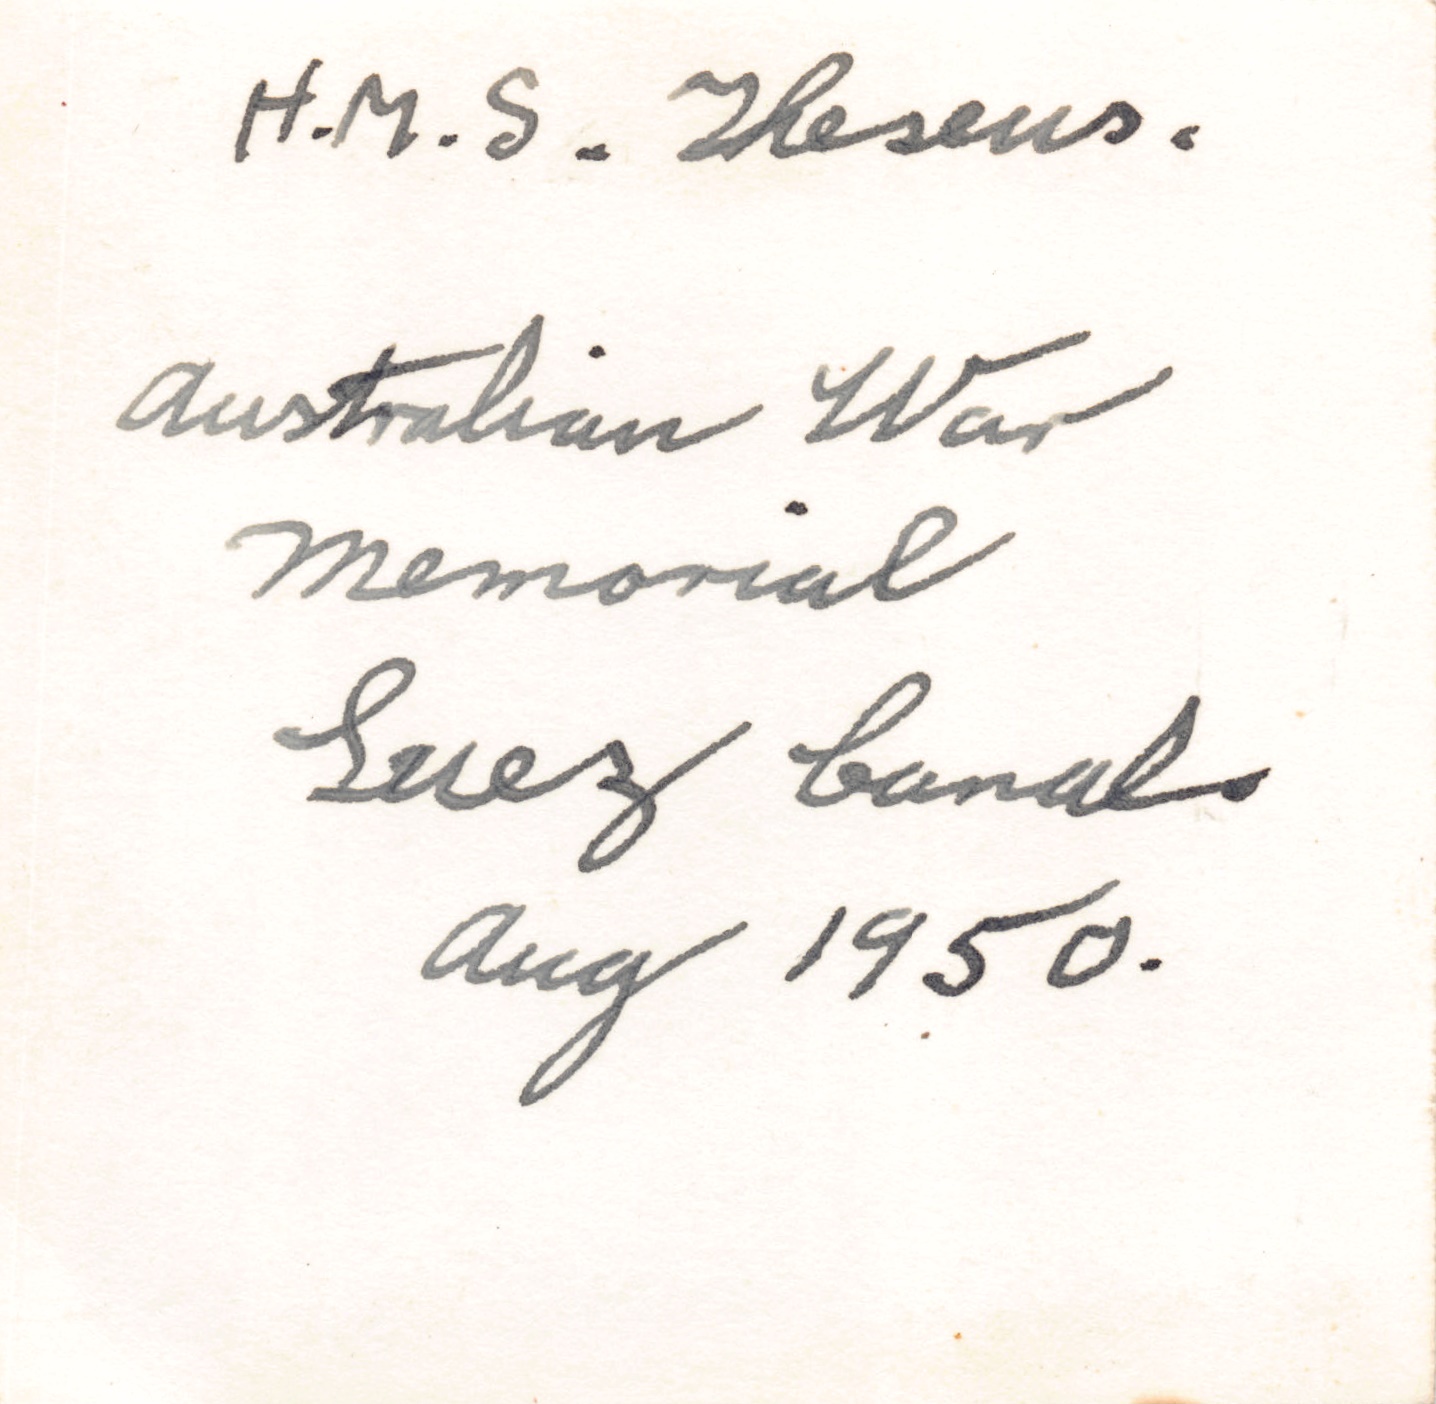 H.M.S. Theseus.
Australian War
Memorial
Suez Canal.
Aug 1950.